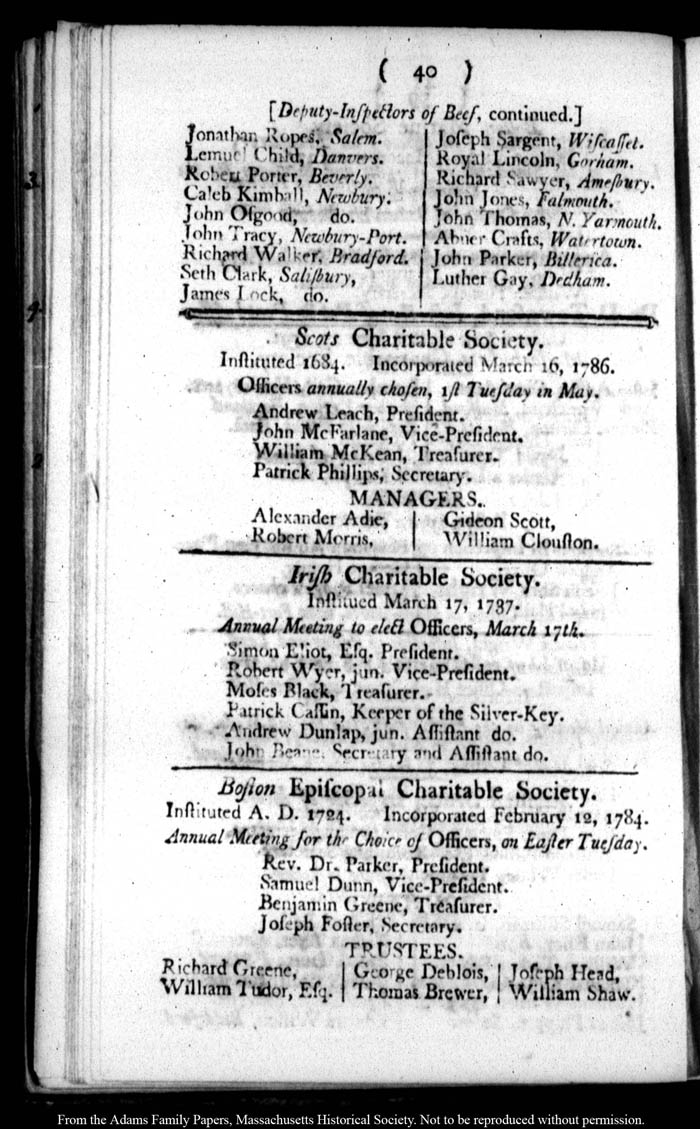 ( 40 )
[Deputy-Inſpectors of Beef, continued.]
Jonathan Ropes, Salem.
Lemuel Child, Danvers.
Robert Porter, Beverly.
Caleb Kimball, Newbury.
John Oſgood, do.
John Tracy, Newbury-Port.
Richard Walker, Bradford.
Seth Clark, Saliſbury,
James Lock, do.
Joſeph Sargent, Wiſcaſſet.
Royal Lincoln, Gorham.
Richard Sawyer, Ameſbury.
John Jones, Falmouth.
John Thomas, N. Yarmouth.
Abner Crafts, Watertown.
John Parker, Billerica.
Luther Gay, Dedham.
Scots Charitable Society.
Inſtituted 1684. Incorporated March 16, 1786.
Officers annually choſen, 1ſt Tueſday in May.
Andrew Leach, Preſident.
John McFarlane, Vice-Preſident.
William McKean, Treaſurer.
Patrick Phillips, Secretary.
MANAGERS.
Alexander Adie, | Gideon Scott,
Robert Morris, | William Clouſton.
Iriſh Charitable Society.
Inſtitued March 17, 1737.
Annual Meeting to elect Officers, March 17th.
Simon Eliot, Eſq. Preſident.
Robert Wyer, jun. Vice-Preſident.
Moſes Black, Treaſurer.
Patrick Caſlin, Keeper of the Silver-Key.
Andrew Dunlap, jun. Aſſiſtant do.
John Beane, Secretary and Aſſiſtant do.
Boſton Epiſcopal Charitable Society.
Inſtituted A. D. 1724. Incorporated February 12, 1784.
Annual Meeting for the Choice of Officers, on Eaſter Tueſday.
Rev. Dr. Parker, Preſident.
Samuel Dunn, Vice-Preſident.
Benjamin Greene, Treaſurer.
Joſeph Foſter, Secretary.
TRUSTEES.
Richard Greene, | George Deblois, | Joſeph Head,
William Tudor, Eſq. | Thomas Brewer, | William Shaw.
From the Adams Family Papers, Massachusetts Historical Society. Not to be reproduced without permission.